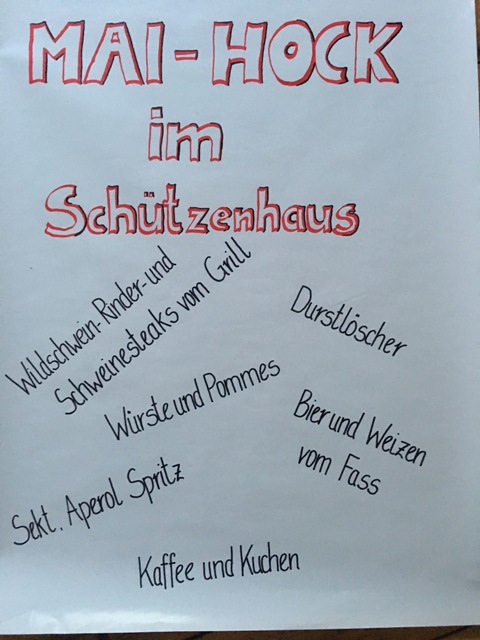 MAI-HOCK
im
Schützenhaus
Wildschwein-Rinder-und
Schweinesteaks vom Grill
Durstlöscher
Würste und Pommes
Bier und Weizen
vom Fass
Sekt. Aperol Spritz
Kaffee und Kuchen